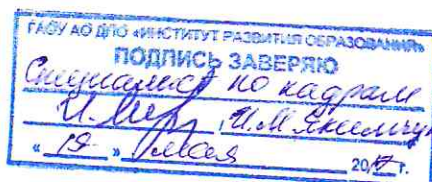 ГАОУ АО ДПО «ИНСТИТУТ РАЗВИТИЯ ОБРАЗОВАНИЯ»
ПОДПИСЬ ЗАВЕРЯЮ
Специалист по кадрам
, И.М Якимчук
« 19 » мая 2017 г.